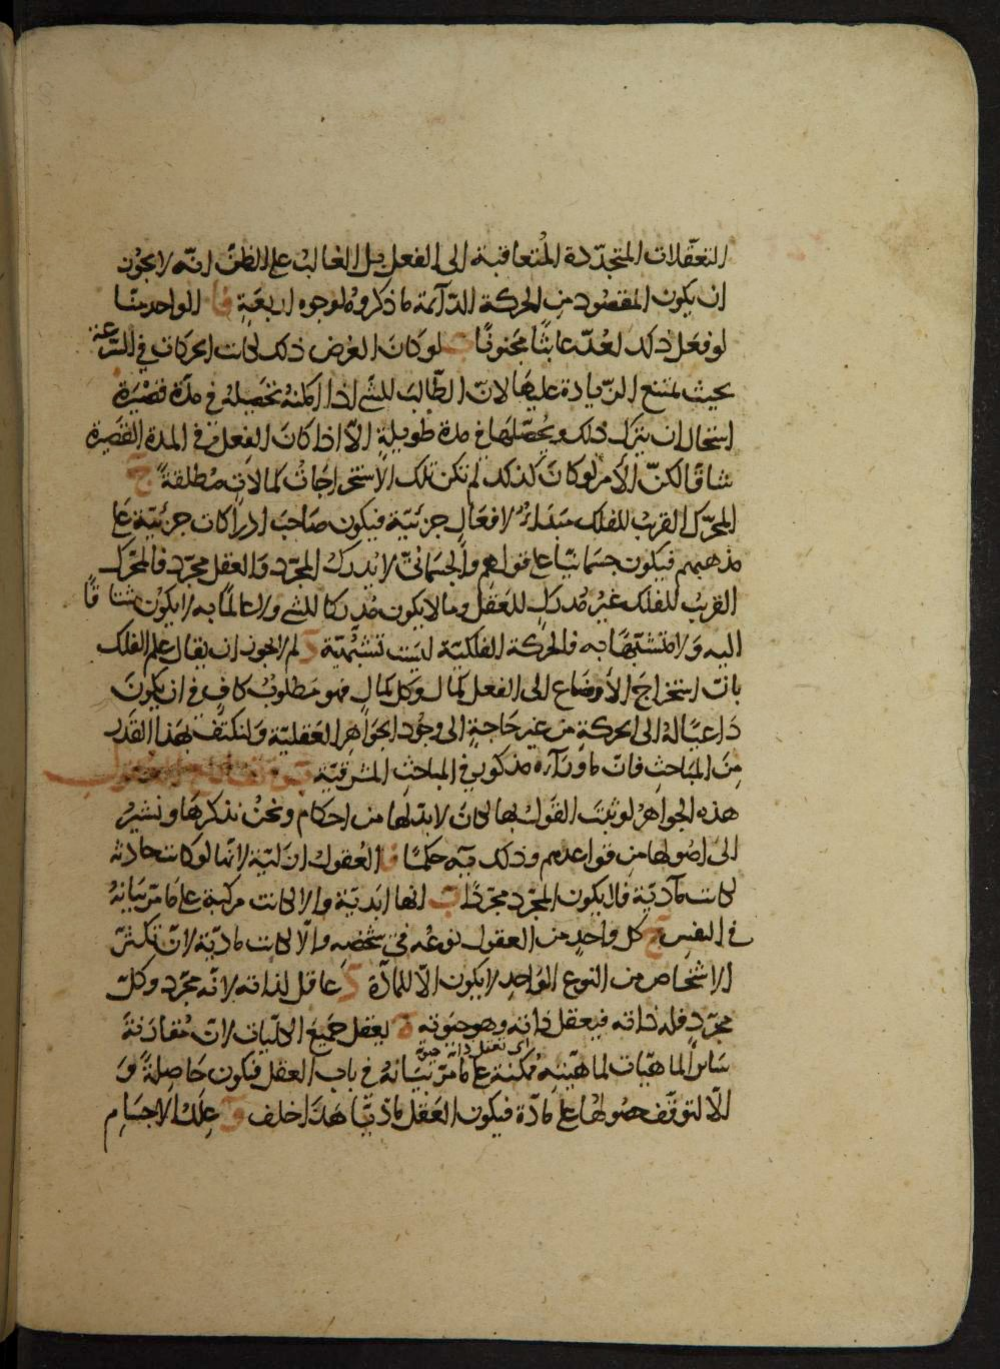 التعقّلات المتجدّدة المُتعاقبة الى الفعل بل الغالب على الظن انّه لا يجوز
ان يكون المقصود من الحركة الدّائمة ما ذكروه لوجوه اربعةٍ آ الواحد منّا
لو فعل ذلك لعُدّ عابثًا مجنونًا ب لو كان الغرض ذلك لكانت الحركات في السّرعة
بحيث يمتنع الزيادة عليها لانّ الطّالب للشّئ اذا امكنهُ تحصيلهُ في مدّة قصيرة
استحال ان يترك ذلك ويُحصّلها في مدة طويلةٍ الّا اذا كان الفعل في المدة القصيرة
شاقًا لكنّ الامر لو كان كذلك لم تكن تلك الاستخراجاتُ كمالاتٍ مطلقةً ج
المحرّك القريبُ للفلك مبداءٌ لافعالٍ جزئيّة فيكون صاحبَ ادراكات جزئيّة على
مذهبهم فيكون جسمانيًّا على قواعدهم والجسمانىّ لا يُدرك المجرّد والعقل مجرّد فالمحرّك
القريبُ للفلك غيرُ مُدركٍ للعقل وما لا يكون مُدركا للشئ ولا عالمًا به لا يكون مشتاقًا
اليه ولا متشبّهًا به فالحركة الفلكيّة ليست تشبّهيّة د لم لا يجوز ان يقال علم الفلك
بانّ استخراجَ الأوضاع الى الفعل كمالٌ وكل كمالٍ فهو مطلوبٌ كافٍ في ان يكون
داعيًا لهُ الى الحركةِ من غير حاجةٍ الى وجُود الجواهر العقليّة ولنكتف بهذا القدر
منَ المباحثِ فانّ ما وراءه مذكور في المباحث المشرقيّة
هذه الجواهرُ لو ثبتَ القولُ بها لكان لا بدّ لها من احكام ونحنُ نذكرها ونشيرُ
الى اصُولها من قواعدهم وذلك فيه حكمًا آ العُقول ازليّة لانّها لو كانت حادثة
لكانت مادّيّة فلا يكون المجرّد مجرّدًا ب انها ابديّة والا لكانت مركبة على ما مرّ بيانهُ
في النفسِ ج كل واحدٍ من العقول نوعُه في شخصِه والّا لكانت مادّيّة لانّ تكثّر
الاشخاص من النوع الواحِد لا يكون الّا للمادّة د عاقل لذاته لانّه مجرّد وكلّ
مجرّدٍ فله ذاته فيعقل ذاته وهو حيوته ه يعقل جميع الكليّات لانّ مُقارنةَ
اى تعقل ذاته حيوة
سائر الماهيّات لماهيّتهِ مُمكنة على ما مرّ بيانُهُ في باب العقل فيكون حَاصِلةً وَ
الّا لتوقّف حصُولها على مادّة فيكون العَقل مادّيًّا هذا خلف و علّة الاجسام